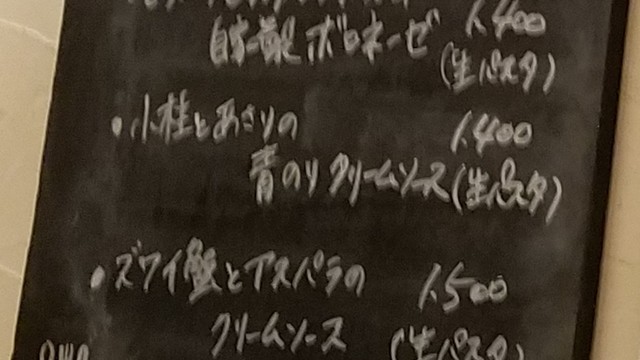 自家製ボロネーゼ 1,400
(生パスタ)
・小柱とあさりの 1,400
青のりクリームソース(生パスタ)
・ズワイ蟹とアスパラの 1,500
クリームソース (生パスタ)